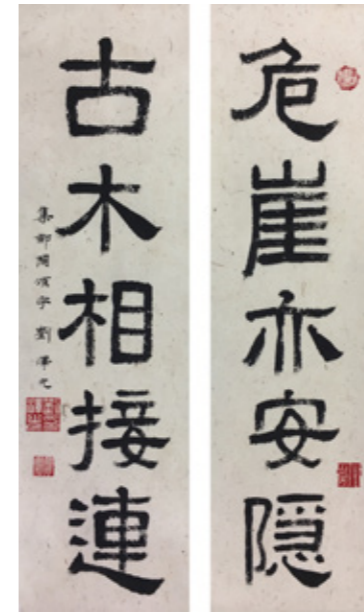 危崖亦安隐
古木相接連
集郙閣頌字 劉澤光